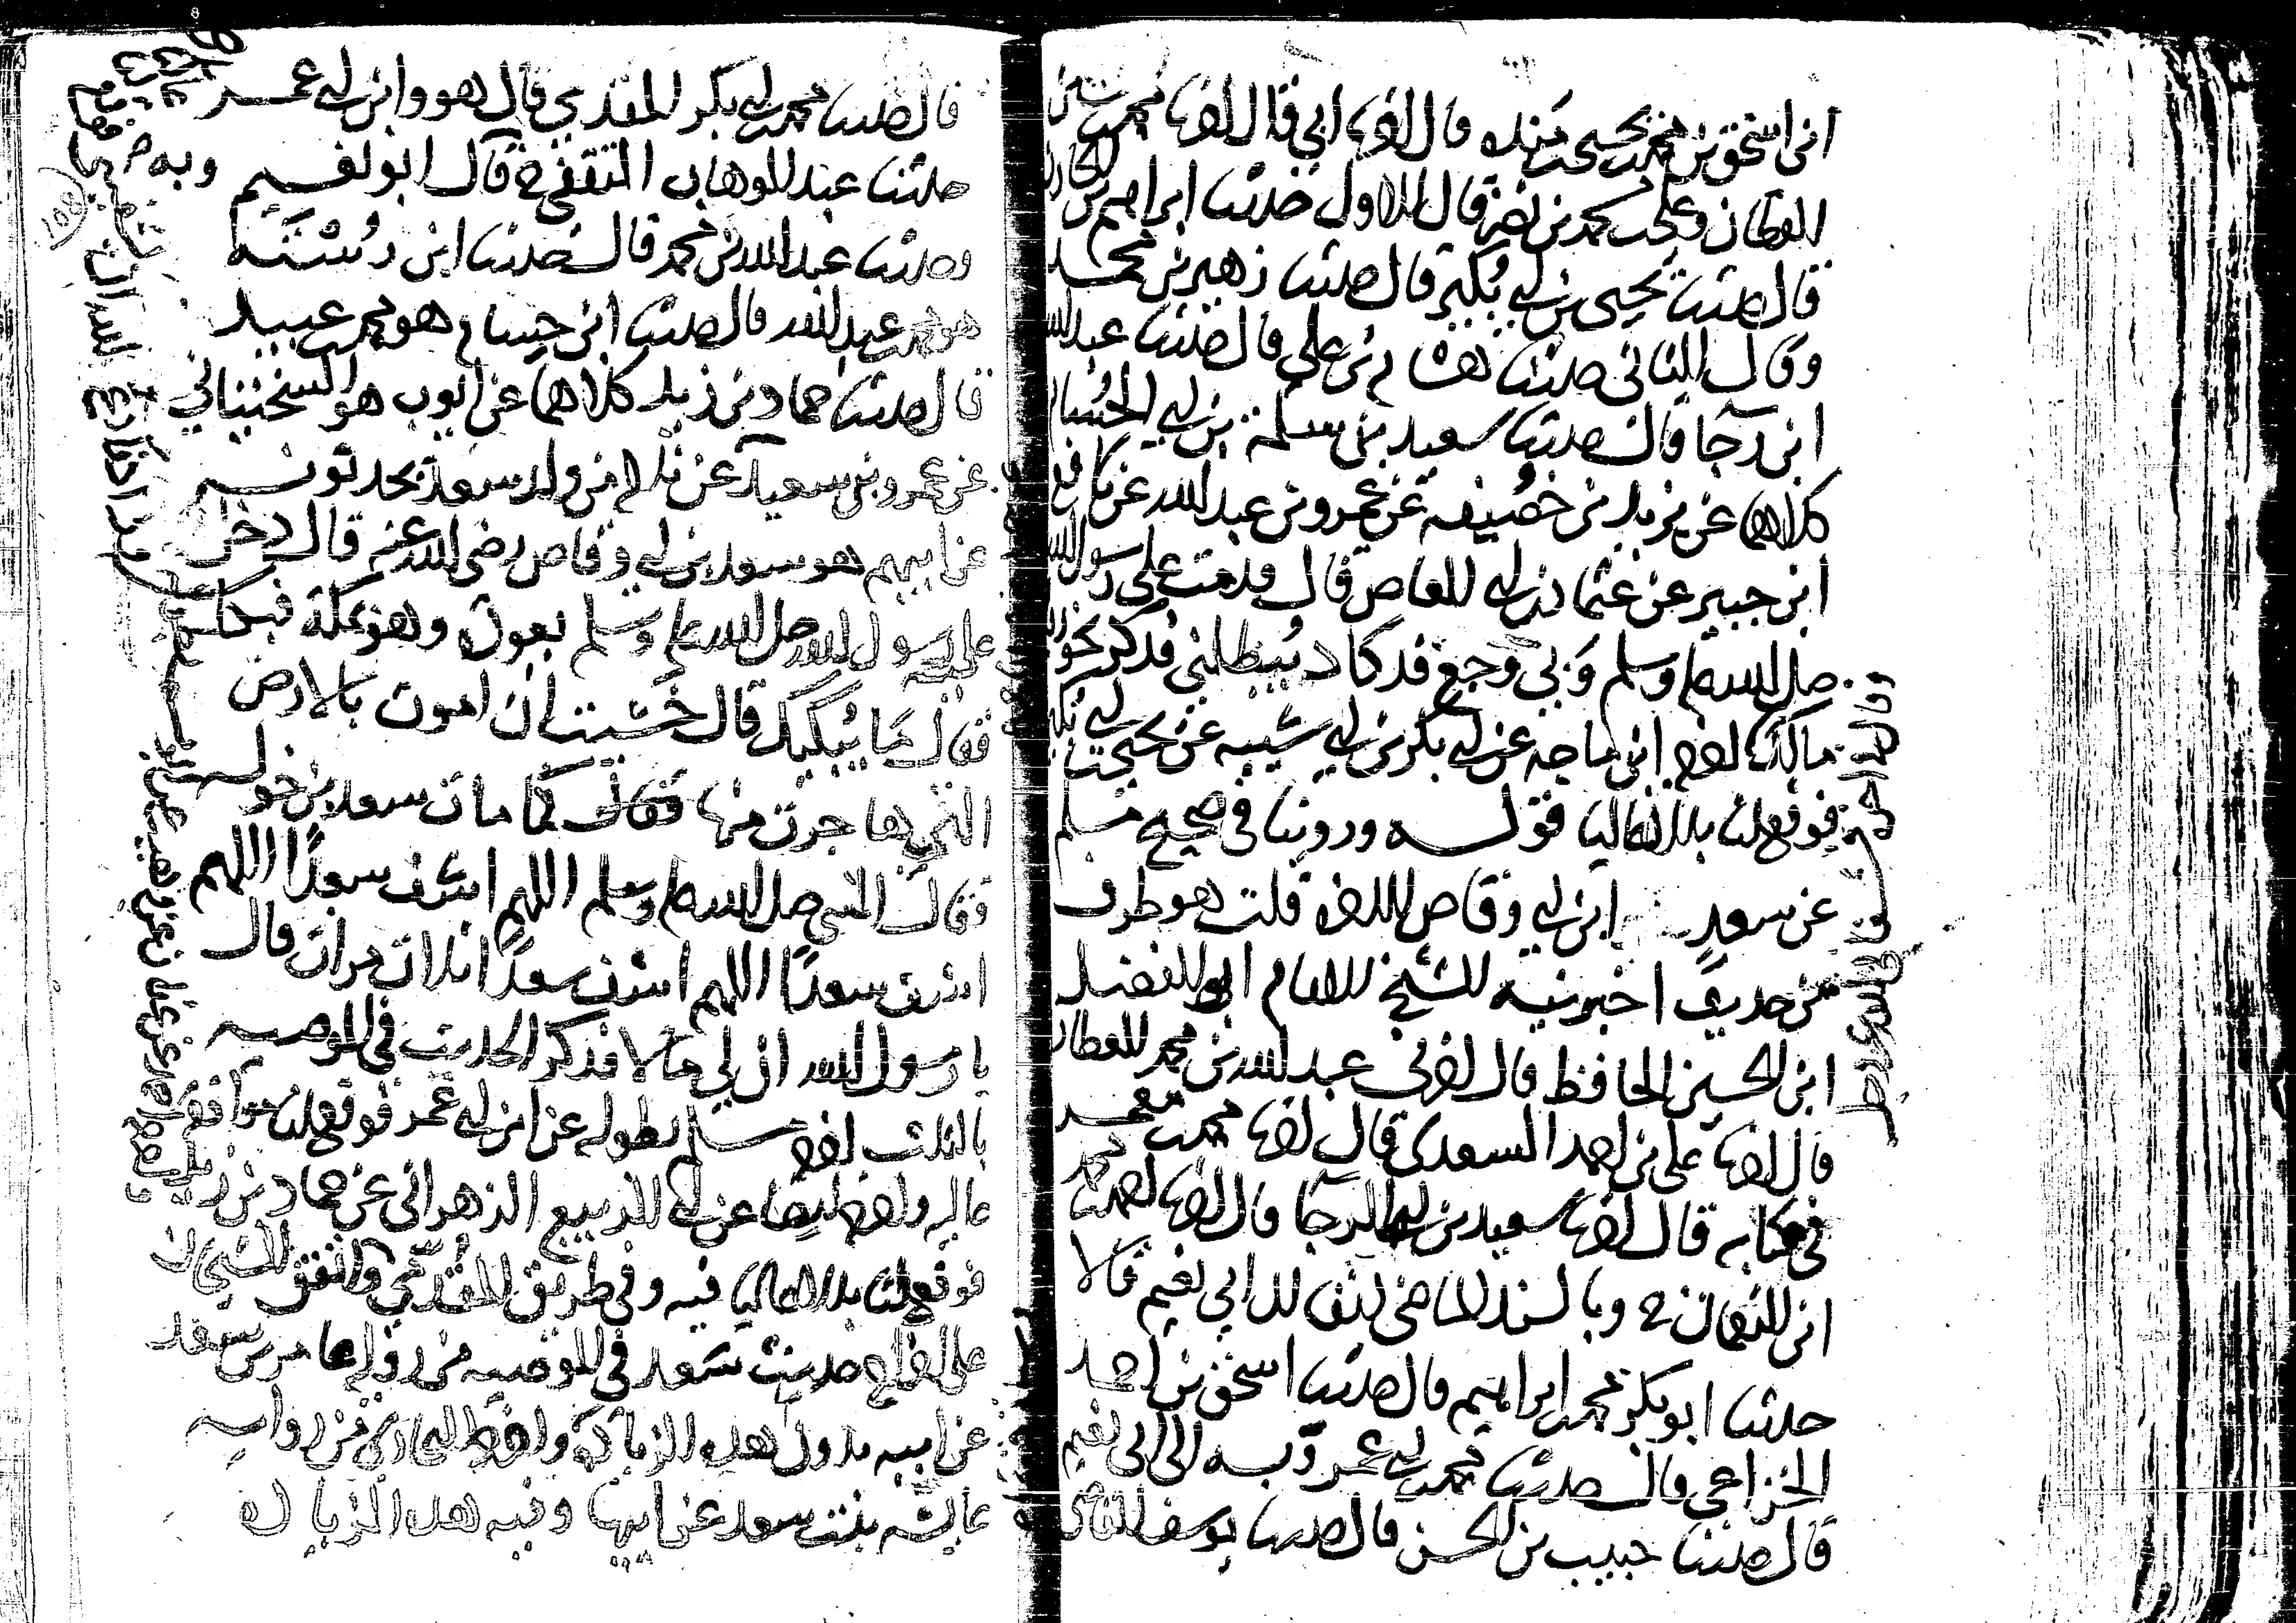 ابن اسحق بن محمد بن يحيى بن منده قال انا ابي قال انا محمد بن الحسين
القطان وعلي بن محمد بن نصر قال الاول حدثنا ابراهيم بن الحارث
قال حدثنا يحيى بن ابي بكير قال حدثنا زهير بن محمد
وقال الثاني حدثنا هشام بن علي قال حدثنا عبد الله
ابن رجا قال حدثنا سعيد بن سلمة بن ابي الحسام
كلاهما عن يزيد بن خصيفه عن عمرو بن عبد الله عن نافع
ابن جبير عن عثمان بن ابي العاص قال قدمت على رسول الله
صلى الله عليه وسلم وبي وجع قد كاد يبطلني فذكر نحو
مالك اخرجه ابن ماجه عن ابي بكر بن ابي شيبه عن يحيى بن ابي بكير
فوقع لنا بدلا عاليا قوله وروينا في صحيح مسلم
عن سعد ابن ابي وقاص الى اخره قلت هو طرف
من حديث اخبرنيه الشيخ الامام ابو الفضل
ابن الحسين الحافظ قال اخبرني عبد الله بن محمد العطار
قال انا علي بن احمد السعدي قال انا محمد بن معمر
في كتابه قال انا سعيد بن ابي الرجا قال انا احمد بن محمد
ابن النعمان ح وبالسند الماضي انفا الى ابي نعيم قالا
حدثنا ابو بكر محمد بن ابراهيم قال حدثنا اسحق بن احمد
الخزاعي قال حدثنا محمد بن ابي عمر وبه الى ابي نعيم
قال حدثنا حبيب بن الحسن قال حدثنا يوسف القاضي
قال حدثنا محمد بن ابي بكر المقدمي قال هو وابن ابي عمر
حدثنا عبد الوهاب الثقفي ح قال ابو نعيم وبه
وحدثنا عبد الله بن محمد قال حدثنا ابن رسته
هو محمد بن عبد الله قال حدثنا ابن حساب هو محمد بن عبيد
قال حدثنا حماد بن زيد كلاهما عن ايوب هو السختياني
عن عمرو بن سعيد عن ثلاثة من ولد سعد يحدثونه
عن ابيهم هو سعد بن ابي وقاص رضي الله عنه قال دخل
على رسول الله صلى الله عليه وسلم يعودني وهو بمكة فبكى
فقال ما يبكيك قال خشيت ان اموت بالارض
التي هاجرت منها كما مات سعد بن خوله
فقال النبي صلى الله عليه وسلم اللهم اشف سعدا اللهم
اشف سعدا اللهم اشف سعدا ثلاث مرات قال
يا رسول الله ان لي مالا فذكر الحديث في الوصيه
بالثلث اخرجه مسلم بطوله عن ابن ابي عمر فوقع لنا موافقة
عاليه واخرجه ايضا عن ابي الربيع الزهراني عن حماد بن زيد
فوقع لنا بدلا عاليا فيه وفي طريق المقدمي واتفق الشيخان
على اخراج حديث سعد في الوصيه من رواية عامر بن سعد
عن ابيه بدون هذه الزيادة واخرجه البخاري من رواية
عايشه بنت سعد عن ابيها وفيه هذه الزيادة